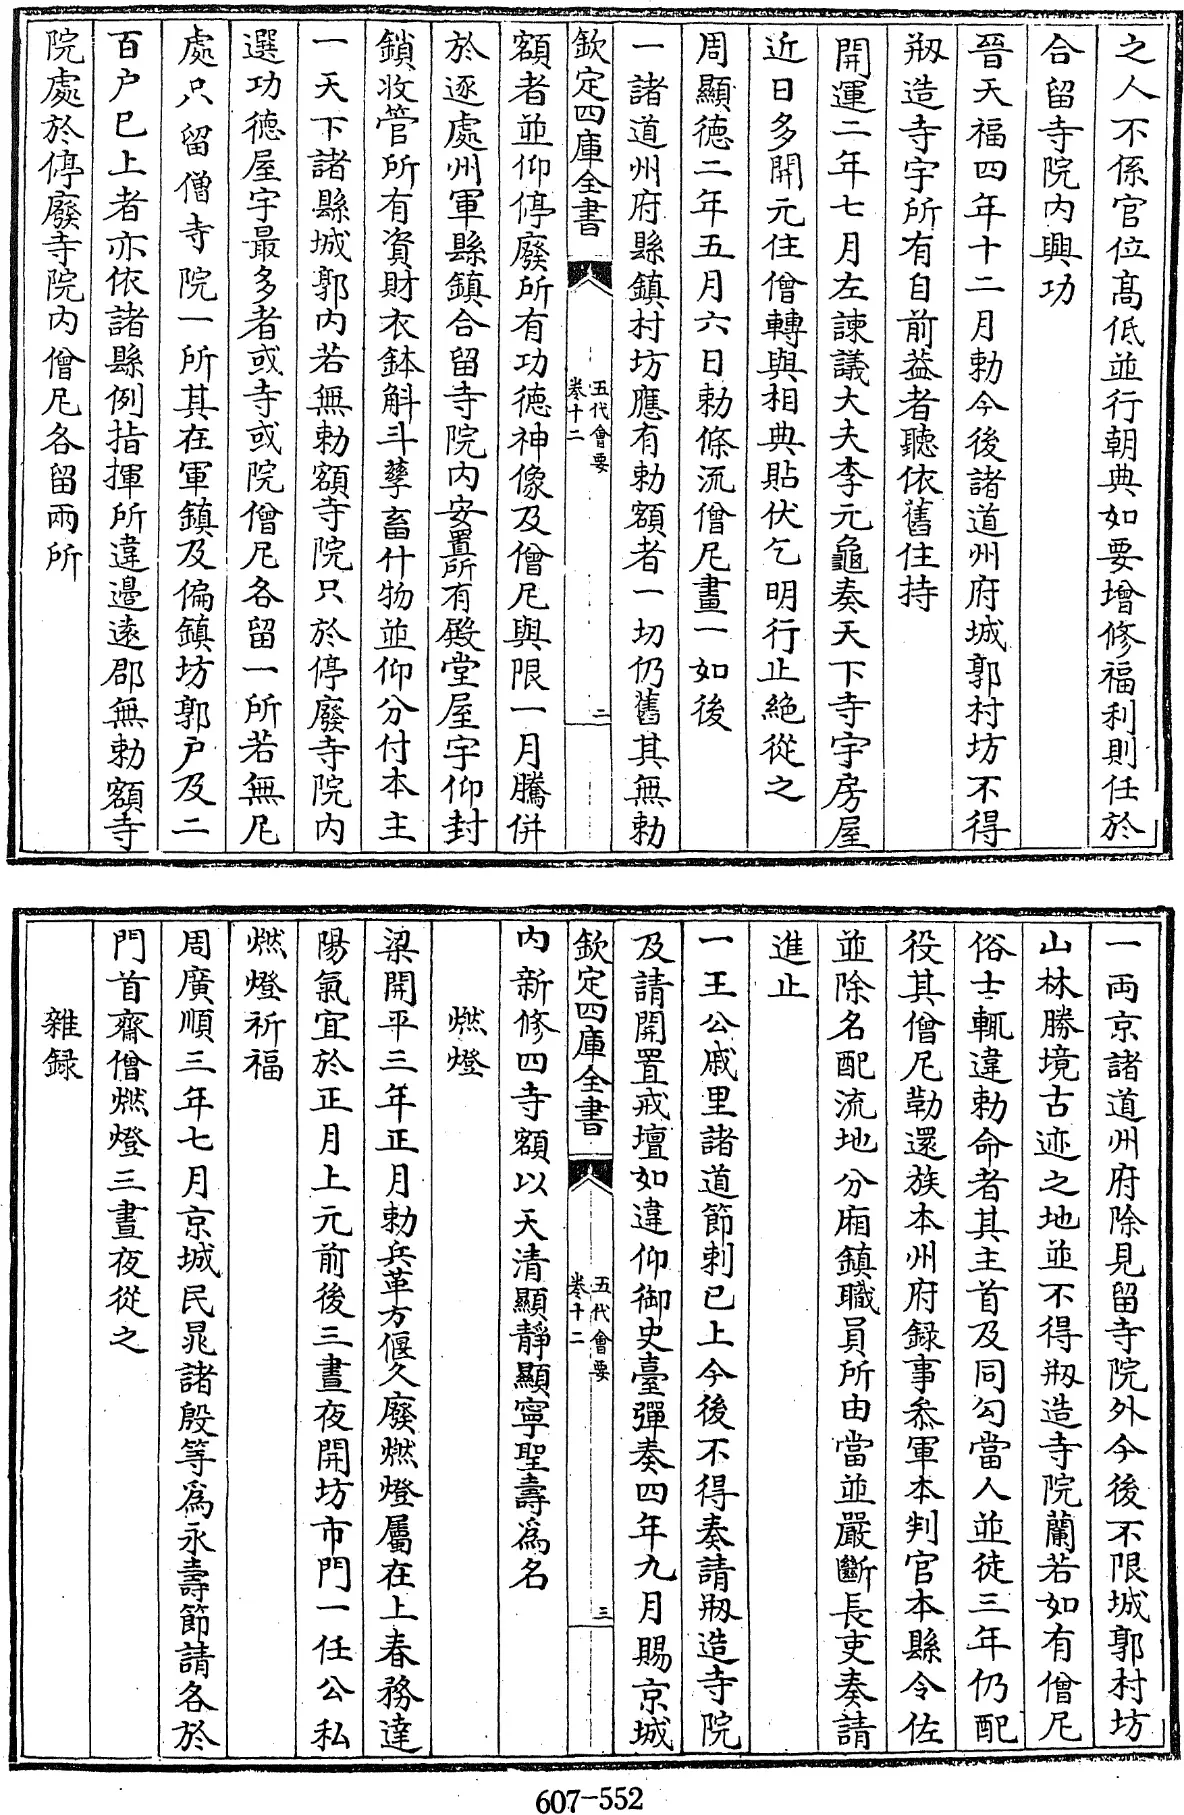 之人不係官位髙低並行朝典如要增修福利則任於
合留寺院内興功
晉天福四年十二月勅今後諸道州府城郭村坊不得
剏造寺宇所有自前葢者聽依舊住持
開運二年七月左諫議大夫李元龜奏天下寺宇房屋
近日多開元住僧轉與相典貼伏乞明行止絶從之
周顯徳二年五月六日勅條流僧尼畫一如後
一諸道州府縣鎮村坊應有勅額者一切仍舊其無勅
欽定四庫全書
五代會要
卷十二
二
額者並仰停廢所有功徳神像及僧尼與限一月騰併
於逐處州軍縣鎮合留寺院内安置所有殿堂屋宇仰封
鎖收管所有資財衣鉢斛斗孳畜什物並仰分付本主
一天下諸縣城郭内若無勅額寺院只於停廢寺院内
選功徳屋宇最多者或寺或院僧尼各留一所若無尼
處只留僧寺院一所其在軍鎮及偏鎮坊郭户及二
百户已上者亦依諸縣例指揮所違邊逺郡無勅額寺
院處於停廢寺院内僧尼各留兩所
一兩京諸道州府除見留寺院外今後不限城郭村坊
山林勝境古迹之地並不得剏造寺院蘭若如有僧尼
俗士輒違勅命者其主首及同勾當人並徒三年仍配
役其僧尼勒還族本州府録事叅軍本判官本縣令佐
並除名配流地分廂鎮職員所由當並嚴斷長吏奏請
進止
一王公戚里諸道節刺已上今後不得奏請剏造寺院
及請開置戒壇如違仰御史臺彈奏四年九月賜京城
欽定四庫全書
五代會要
卷十二
三
内新修四寺額以天清顯靜顯寧聖壽爲名
燃燈
梁開平三年正月勅兵革方偃久廢燃燈屬在上春務達
陽氣宜於正月上元前後三晝夜開坊市門一任公私
燃燈祈福
周廣順三年七月京城民晁諸殷等爲永壽節請各於
門首齋僧燃燈三晝夜從之
雜録
607-552